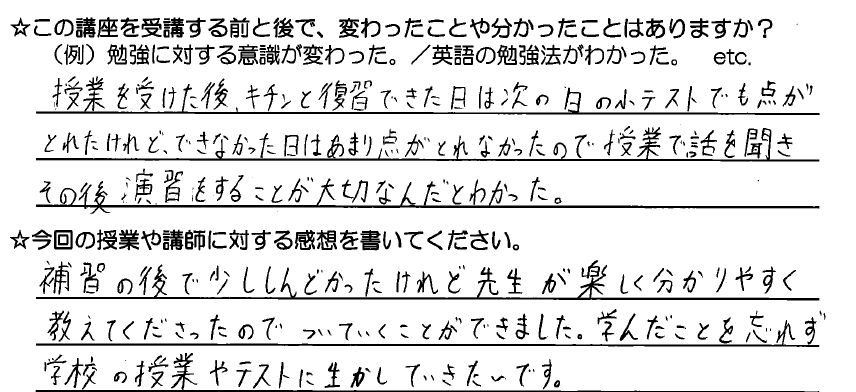 ☆この講座を受講する前と後で、変わったことや分かったことはありますか？
（例）勉強に対する意識が変わった。／英語の勉強法がわかった。 etc.
授業を受けた後、キチンと復習できた日は次の日の小テストでも点が
とれたけれど、できなかった日はあまり点がとれなかったので授業で話を聞き
その後演習をすることが大切なんだとわかった。
☆今回の授業や講師に対する感想を書いてください。
補習の後で少ししんどかったけれど先生が楽しく分かりやすく
教えてくださったのでついていくことができました。学んだことを忘れず
学校の授業やテストに生かしていきたいです。